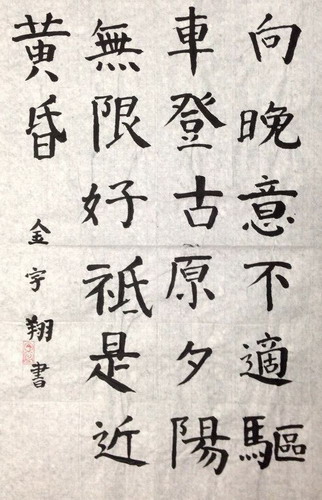 向晚意不適驅
車登古原夕陽
無限好祗是近
黃昏
金宇翔書